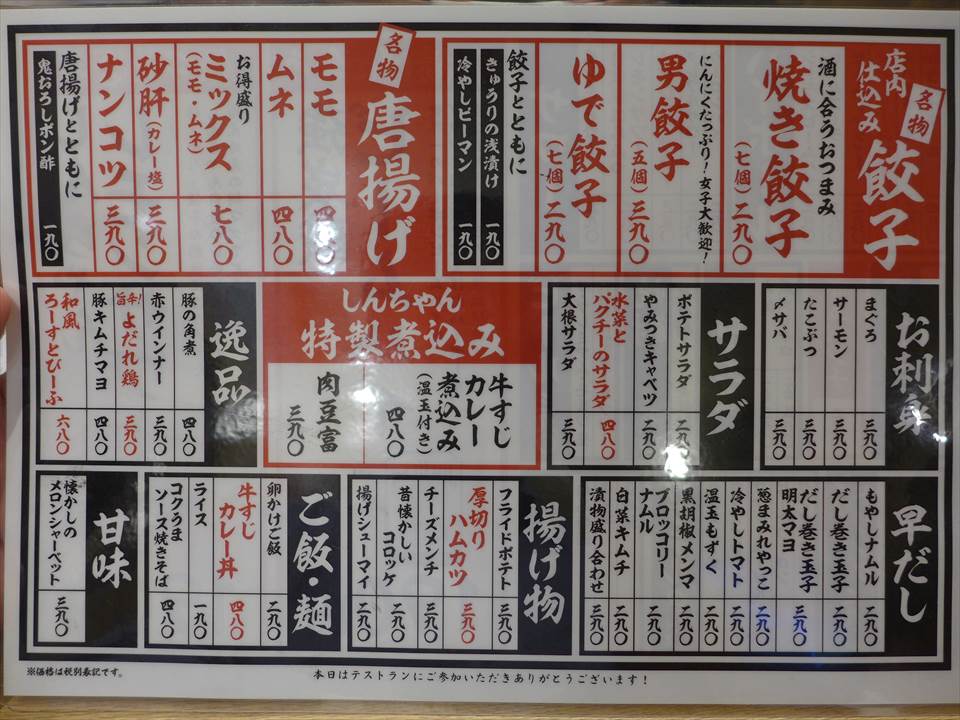 店内
仕込み
名物
餃子
酒に合うおつまみ
焼き餃子
(七個)二九〇
にんにくたっぷり!女子大歓迎!
男餃子
(五個)三九〇
ゆで餃子
(七個)二九〇
餃子とともに
きゅうりの浅漬け 一九〇
冷やしピーマン 一九〇
名物
唐揚げ
モモ 四八〇
ムネ 四八〇
お得盛り
ミックス
(モモ・ムネ)
七八〇
砂肝(カレー塩) 三九〇
ナンコツ 三九〇
唐揚げとともに
鬼おろしポン酢 一九〇
お刺身
まぐろ 三九〇
サーモン 三九〇
たこぶつ 三九〇
〆サバ 三九〇
サラダ
ポテトサラダ 二九〇
やみつきキャベツ 二九〇
水菜と
パクチーのサラダ 四八〇
大根サラダ 三九〇
しんちゃん
特製煮込み
牛すじ
カレー
煮込み
(温玉付き)
四八〇
肉豆富
三九〇
逸品
豚の角煮 四八〇
赤ウインナー 三九〇
旨辛!よだれ鶏 三九〇
豚キムチマヨ 四八〇
和風
ろーすとびーふ 六八〇
早だし
もやしナムル 二九〇
だし巻き玉子 二九〇
だし巻き玉子
明太マヨ 三九〇
葱まみれやっこ 二九〇
冷やしトマト 二九〇
温玉もずく 二九〇
黒胡椒メンマ 二九〇
ブロッコリー
ナムル 二九〇
白菜キムチ 二九〇
漬物盛り合わせ 三九〇
揚げ物
フライドポテト 三九〇
厚切り
ハムカツ 三九〇
チーズメンチ 三九〇
昔懐かしい
コロッケ 二九〇
揚げシューマイ 二九〇
ご飯・麺
卵かけご飯 二九〇
牛すじ
カレー丼 四八〇
ライス 一九〇
コクうま
ソース焼きそば 四八〇
甘味
懐かしの
メロンシャーベット 三九〇
※価格は税別表記です。
本日はテストランにご参加いただきありがとうございます!